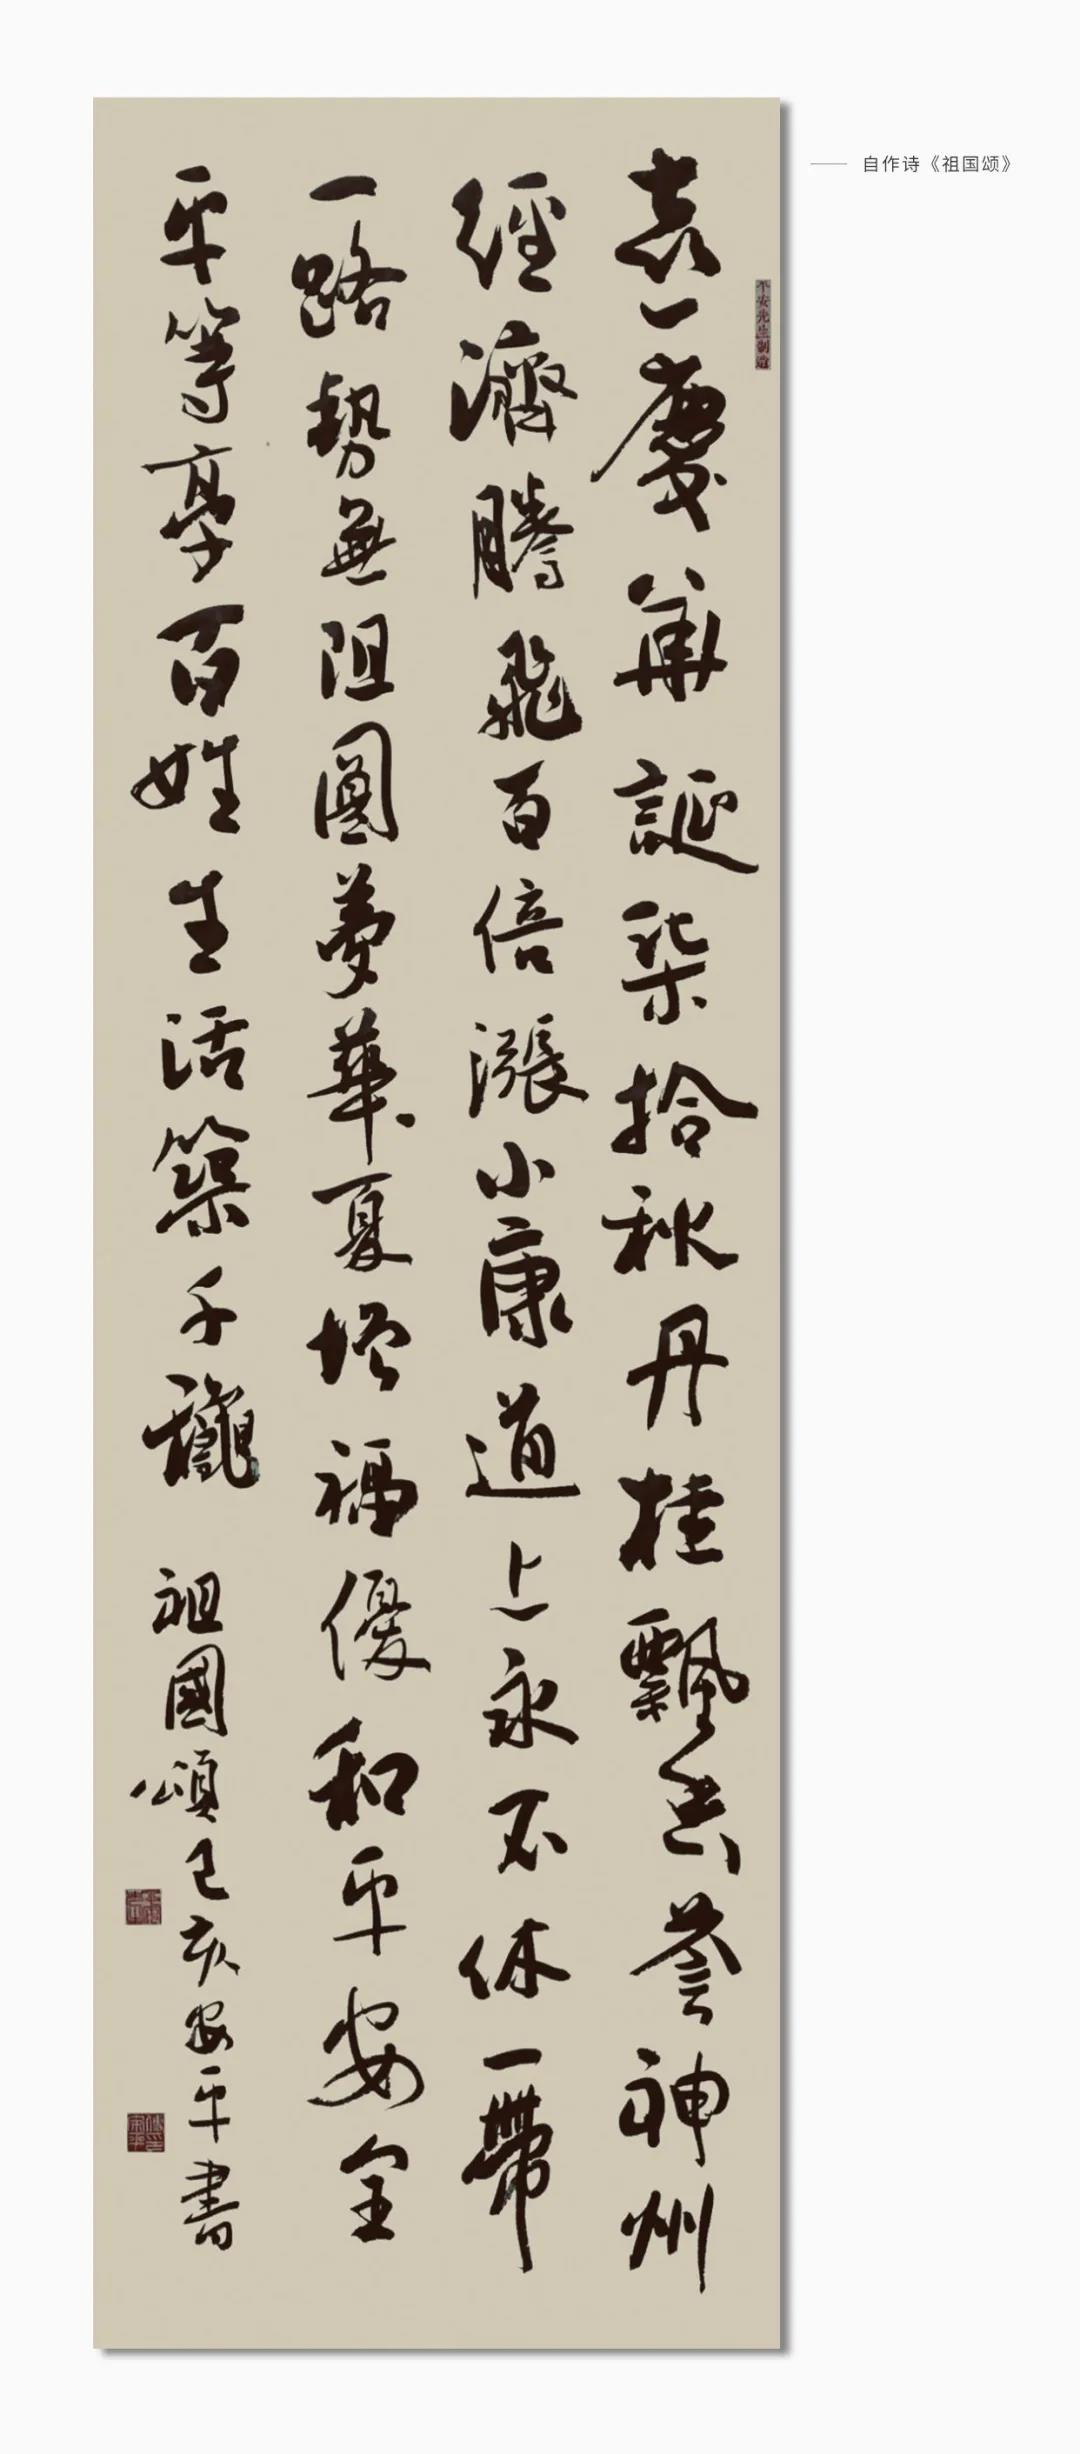 自作诗《祖国颂》
喜慶華誕柒拾秋丹桂飄香譽神州
平安先生制造
經濟騰飛百倍漲小康道上永不休一帶
一路勢無阻圓夢華夏增福優和平安全
平等享百姓生活築千龝
祖國頌己亥安平書